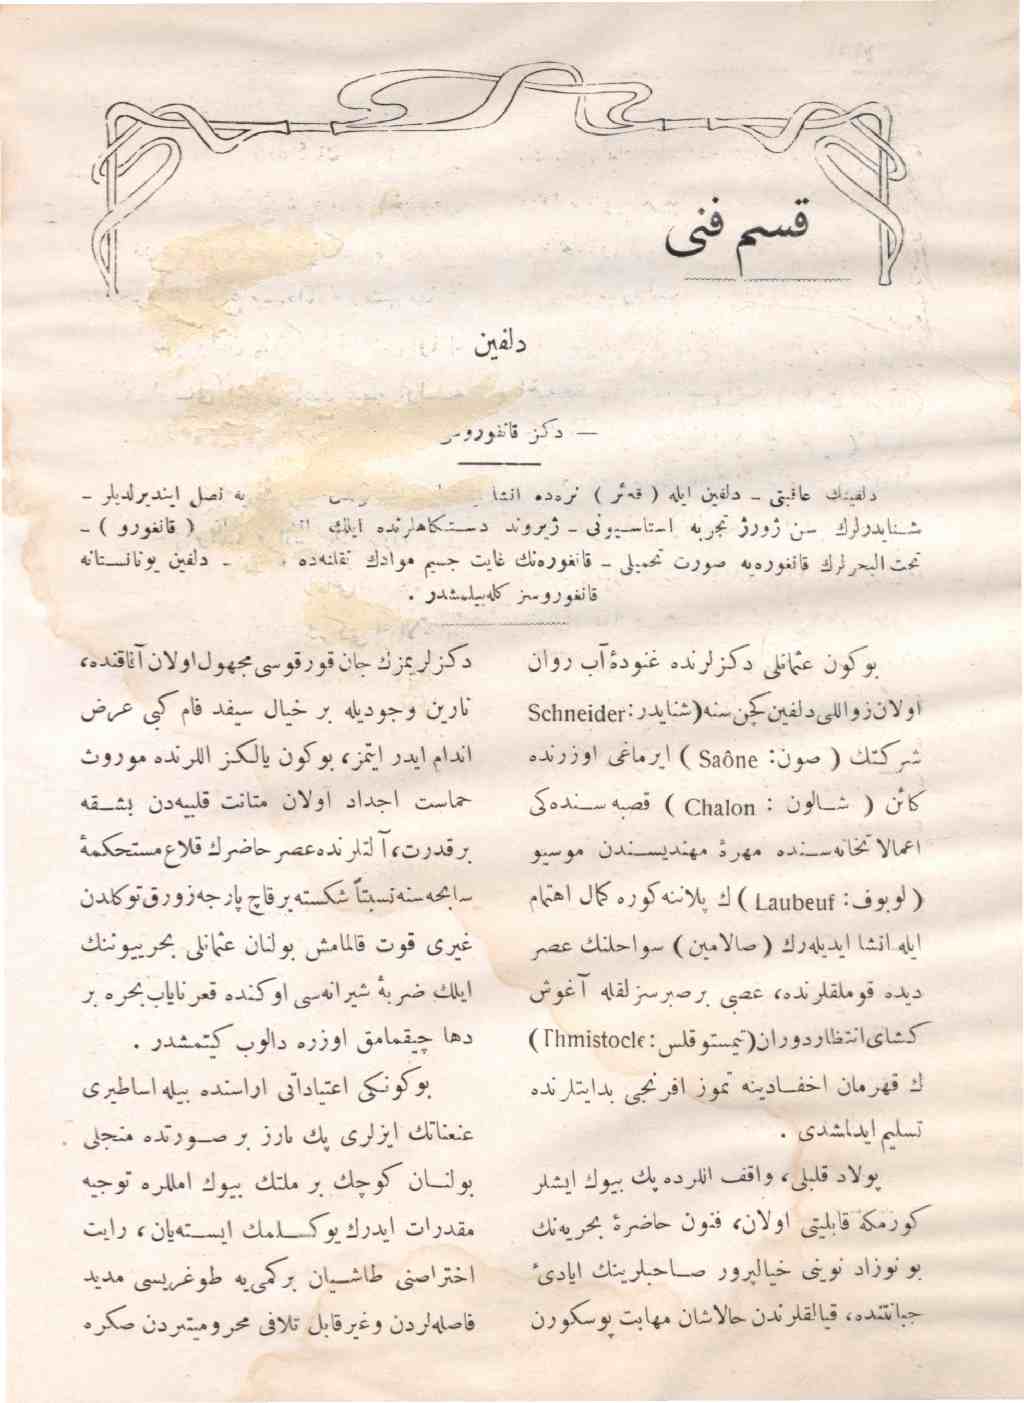 قسم فنی
دلفین
— دکز قانغوروسی
دلفینك عاقبتی ـ دلفین ایله ( فەئر ) نرەده انشا یه نصل ایندیرلدیلر ـ
شــنایدرلرك سن ژورژ تجربه استاسـیونی ـ ژیروند دسـتکاهلرنده ایلك ( قانغورو ) ـ
تحت البحرلرك قانغورەیه صورت تحمیلی ـ قانغورەنك غایت جسیم موادك نقلنەده ـ دلفین یونانسـتانه
قانغوروسز کلەبیلمشدر .
بوکون عثمانلی دکزلرنده غنودۀ آب روان
اولان زواللی دلفین کچن سنه (شنایدر: Schneider
شرکتك ( صون: Saône ) ایرماغی اوزرنده
کائن ( شــالون : Chalon ) قصبه ســندەکی
اعمالاتخانەسـنده مهرۀ مهندیسـندن موسیو
( لوبوف: Laubeuf ) ك پلاننه کوره کمال اهتمام
ایله انشا ایدیلەرك ( صالامین ) سواحلنك عصر
دیده قوملقلرنده، عصبی برصبرسزلقله آغوش
کشای انتظار دوران (تیمستوقلس: Thmistocle)
ك قهرمان اخفــادینه تموز افرنجی بدایتلرنده
تسلیم ایدلمشدی .
پولاد قلبلی، واقف انلرده پك بیوك ایشلر
کورمکه قابلیتی اولان، فنون حاضرۀ بحریەنك
بو نوزاد نوینی خیالپرور صــاحبلرینك ایادیٔ
جبانتنده، قیالقلرندن حالاشان مهابت پوسکورن
دکزلریمزك جان قورقوسی مجهول اولان آفاقنده،
نارین وجودیله بر خیال سیفد فام کبی عرض
اندام ایدر ایتمز، بوکون یالکـز اللرنده موروث
حماست اجداد اولان متانت قلبیەدن بشــقه
برقدرت، آلتلرنده عصر حاضرك قلاع مستحکمۀ
سابحه سنه نسبتاً شکسته برقاچ پارچه زورق توکلدن
غیری قوت قالمامش بولنان عثمانلی بحرییوننك
ایلك ضربۀ شیرانەسی اوکنده قعر نایاب بحره بر
دها چیقمامق اوزره دالوب کیتمشدر .
بوکونکی اعتیاداتی اراسنده بیله اساطیری
عنعناتك ایزلری پك بارز بر صــورتده منجلی
بولنــان کوچك بر ملتك بیوك امللره توجیه
مقدرات ایدرك یوکســلمك ایســتەیان، رایت
اختراصنی طاشـیان برکمی‌یه طوغریسی مدید
فاصلەلردن وغیرقابل تلافی محرومیتبردن صکره